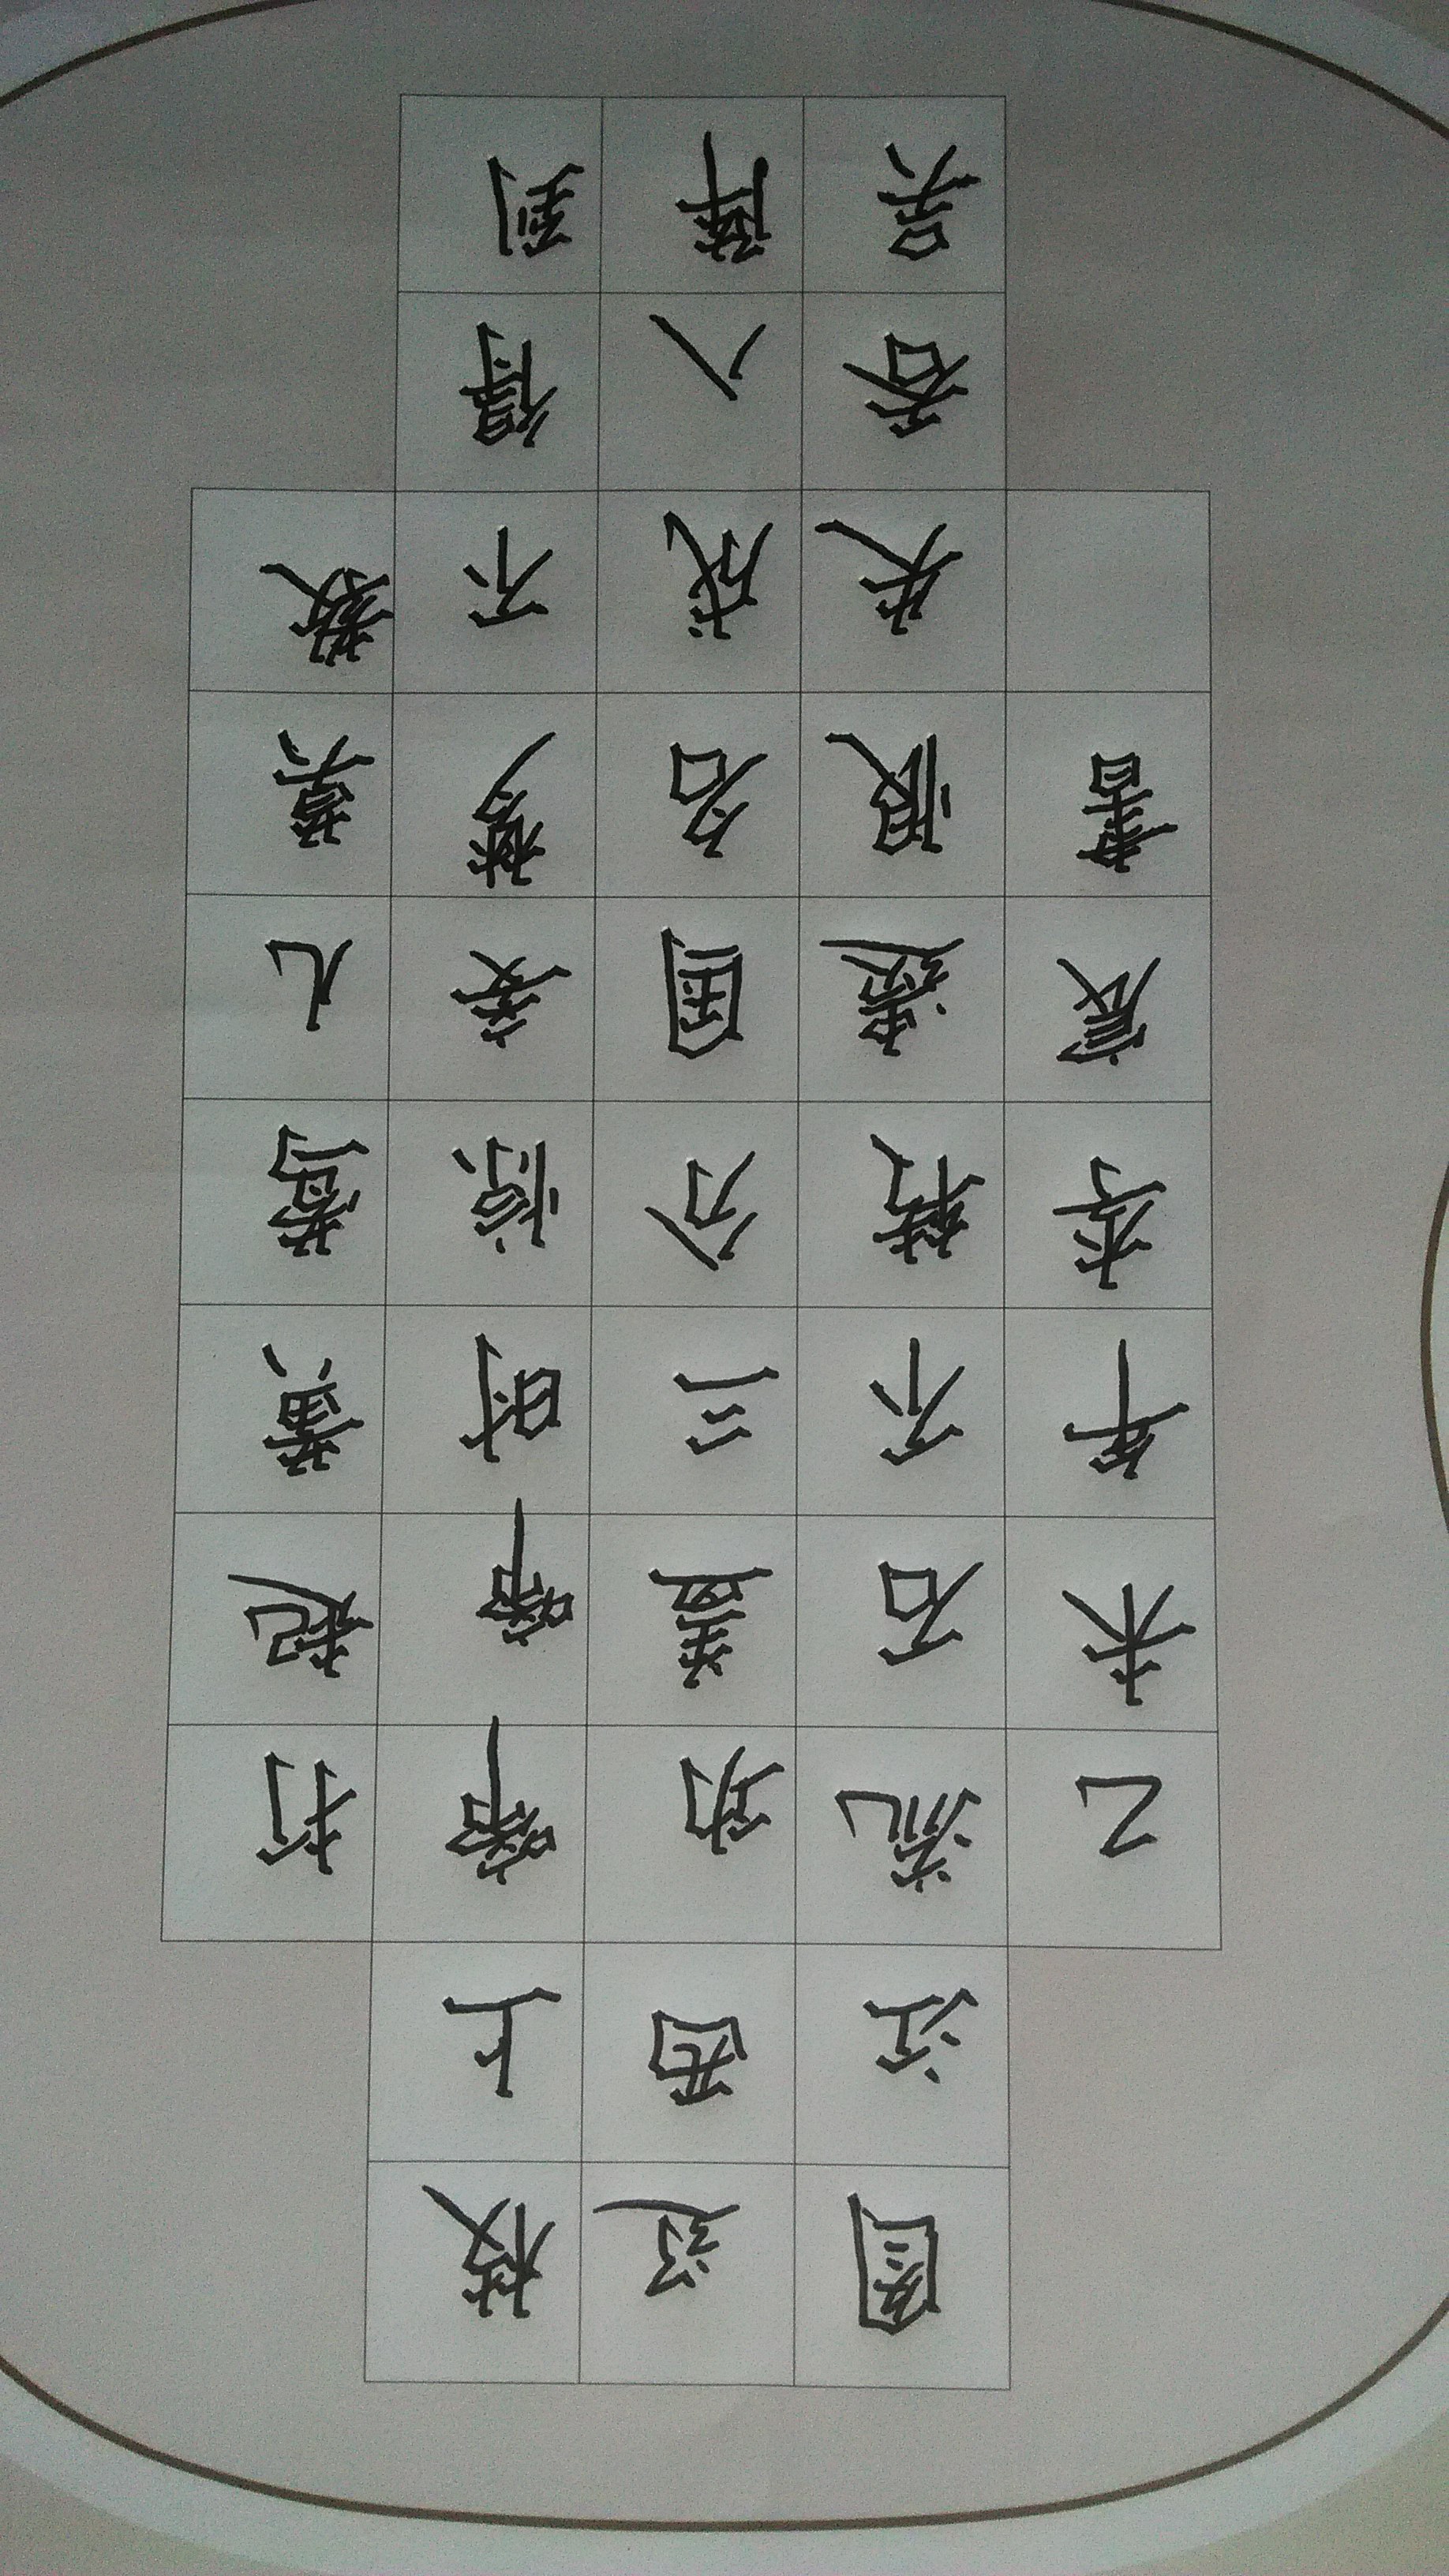 打起黄莺儿莫教
枝上啼啼时惊妾梦不得到
辽西功盖三分国名成八阵
图江流石不转遗恨失吞吴
乙未年李宸书